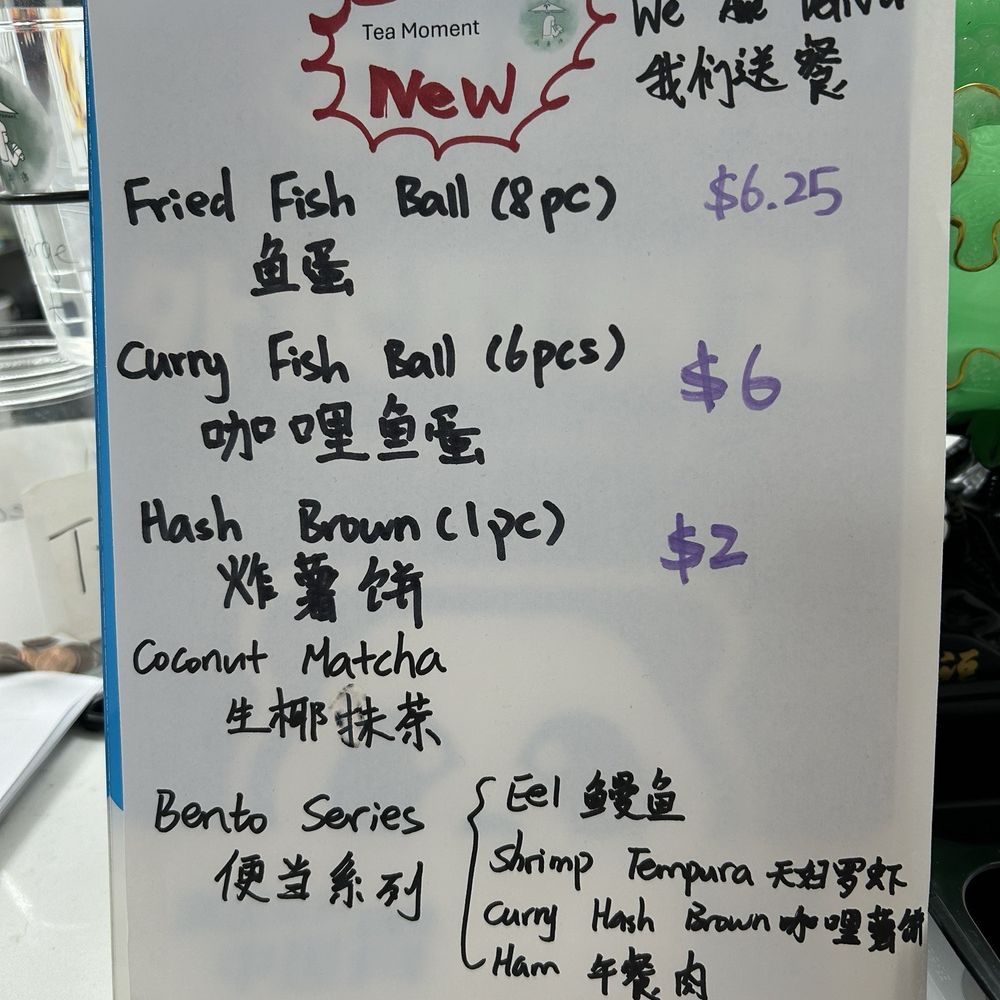 Tea Moment
New
We Are Deliver
我们送餐
Fried Fish Ball (8pc) $6.25
鱼蛋
Curry Fish Ball (6pcs) $6
咖哩鱼蛋
Hash Brown (1pc) $2
炸薯饼
Coconut Matcha
生椰抹茶
Bento Series
便当系列
Eel 鳗鱼
Shrimp Tempura 天妇罗虾
Curry Hash Brown 咖哩薯饼
Ham 午餐肉